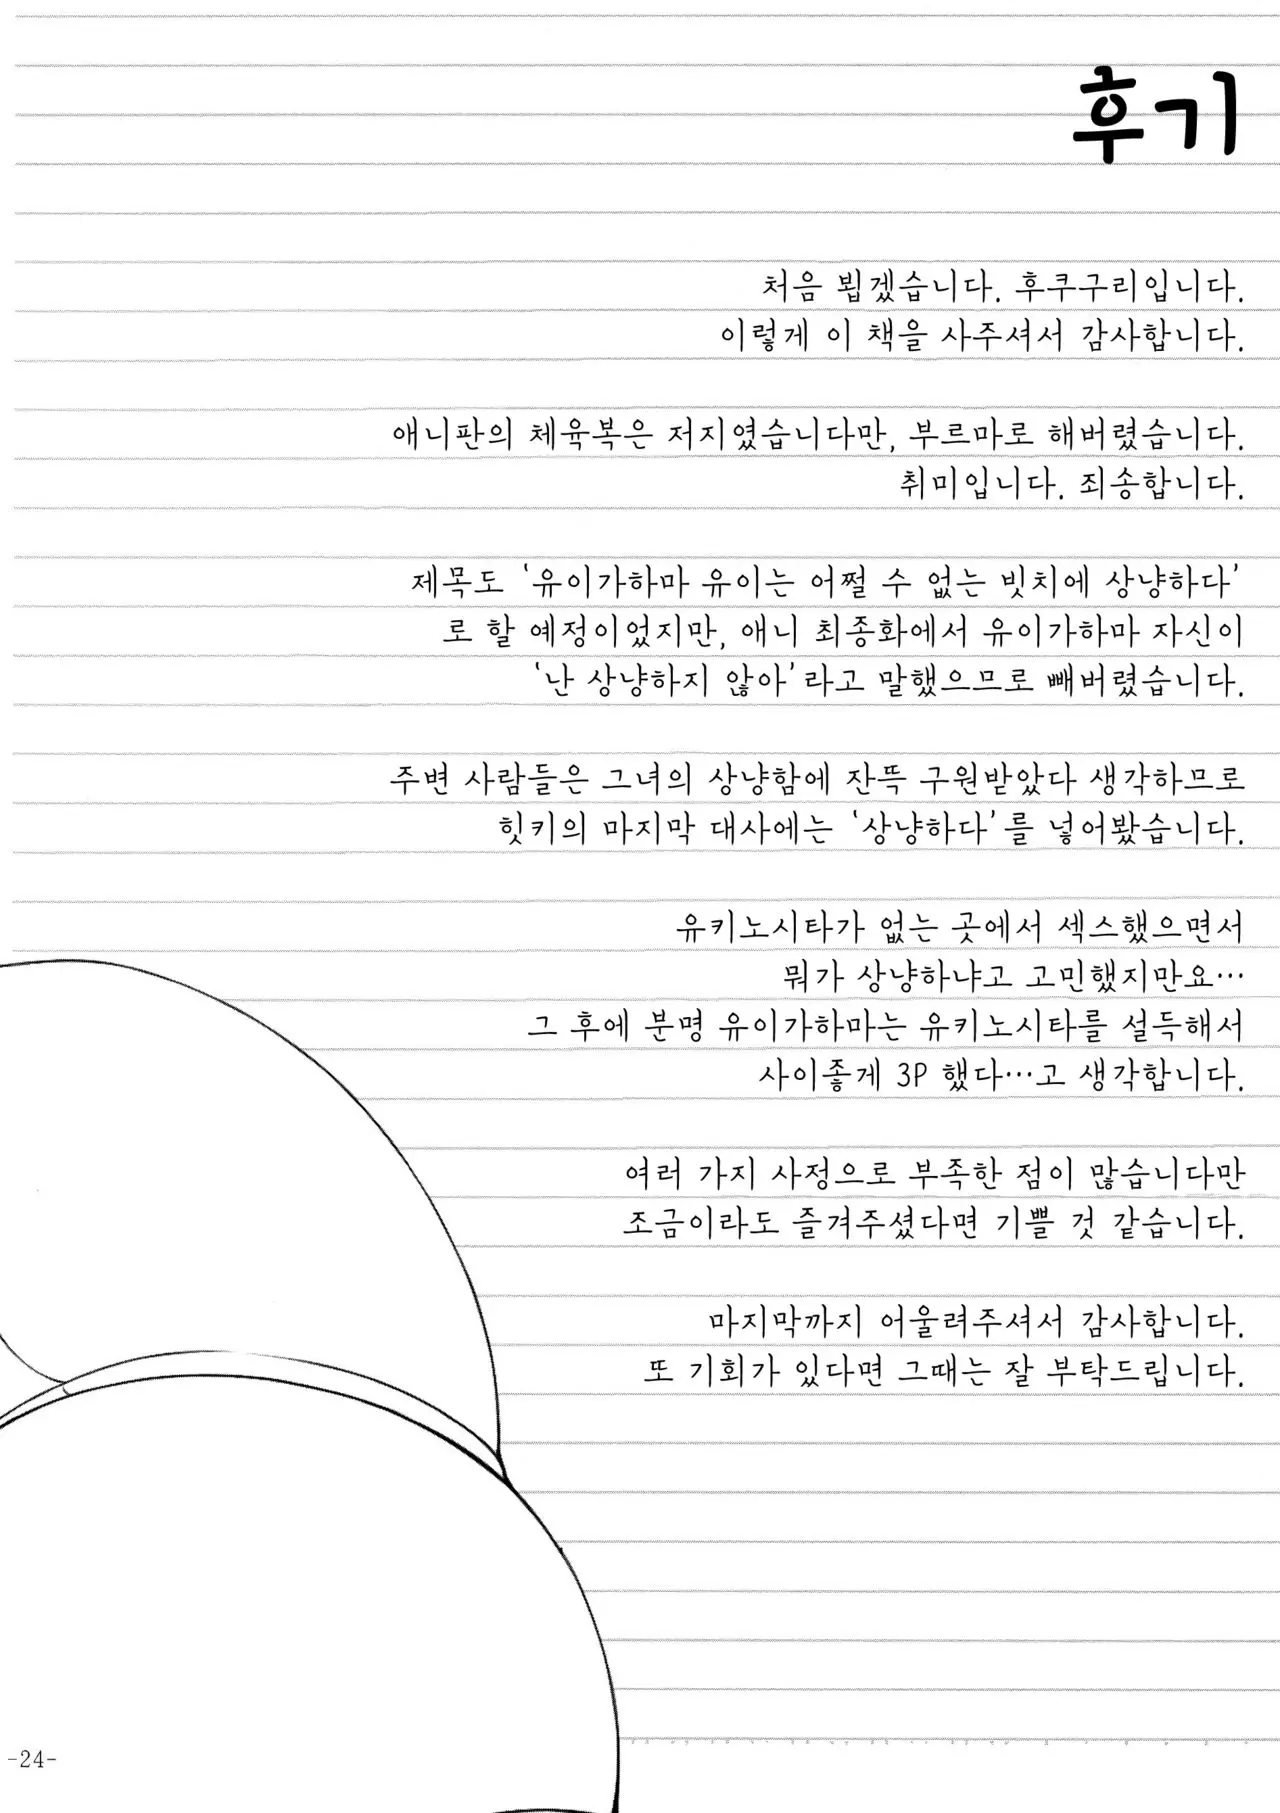 후기
처음 뵙겠습니다. 후쿠구리입니다.
이렇게 이 책을 사주셔서 감사합니다.
애니판의 체육복은 저지였습니다만, 부르마로 해버렸습니다.
취미입니다. 죄송합니다.
제목도 '유이가하마 유이는 어쩔 수 없는 빗치에 상냥하다'
로 할 예정이었지만, 애니 최종화에서 유이가하마 자신이
'난 상냥하지 않아'라고 말했으므로 빼버렸습니다.
주변 사람들은 그녀의 상냥함에 잔뜩 구원받았다 생각하므로
힛키의 마지막 대사에는 '상냥하다'를 넣어봤습니다.
유키노시타가 없는 곳에서 섹스했으면서
뭐가 상냥하냐고 고민했지만요…
그 후에 분명 유이가하마는 유키노시타를 설득해서
사이좋게 3P 했다…고 생각합니다.
여러 가지 사정으로 부족한 점이 많습니다만
조금이라도 즐겨주셨다면 기쁠 것 같습니다.
마지막까지 어울려주셔서 감사합니다.
또 기회가 있다면 그때는 잘 부탁드립니다.
-24-